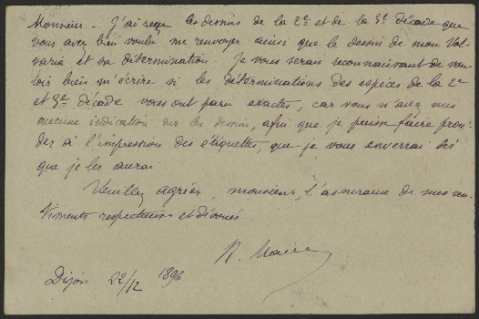 Monsieur. J'ai reçu les dessins de la 2e et de la 3e décade que
vous avez bien voulu me renvoyer ainsi que le dessin de mon Vol-
varia et sa détermination. Je vous serais reconnaissant de vou-
loir bien m'écrire si les déterminations des espèces de la 2e
et 3e décade vous ont paru exactes, car vous n'avez mis
aucune indication sur les dessins, afin que je puisse faire procé-
der à l'impression des étiquettes, que je vous enverrai dès
que je les aurai.
Veuillez agréer, monsieur, l'assurance de mes sen-
timents respectueux et dévoués
R. Maire
Dijon 22/12 1896